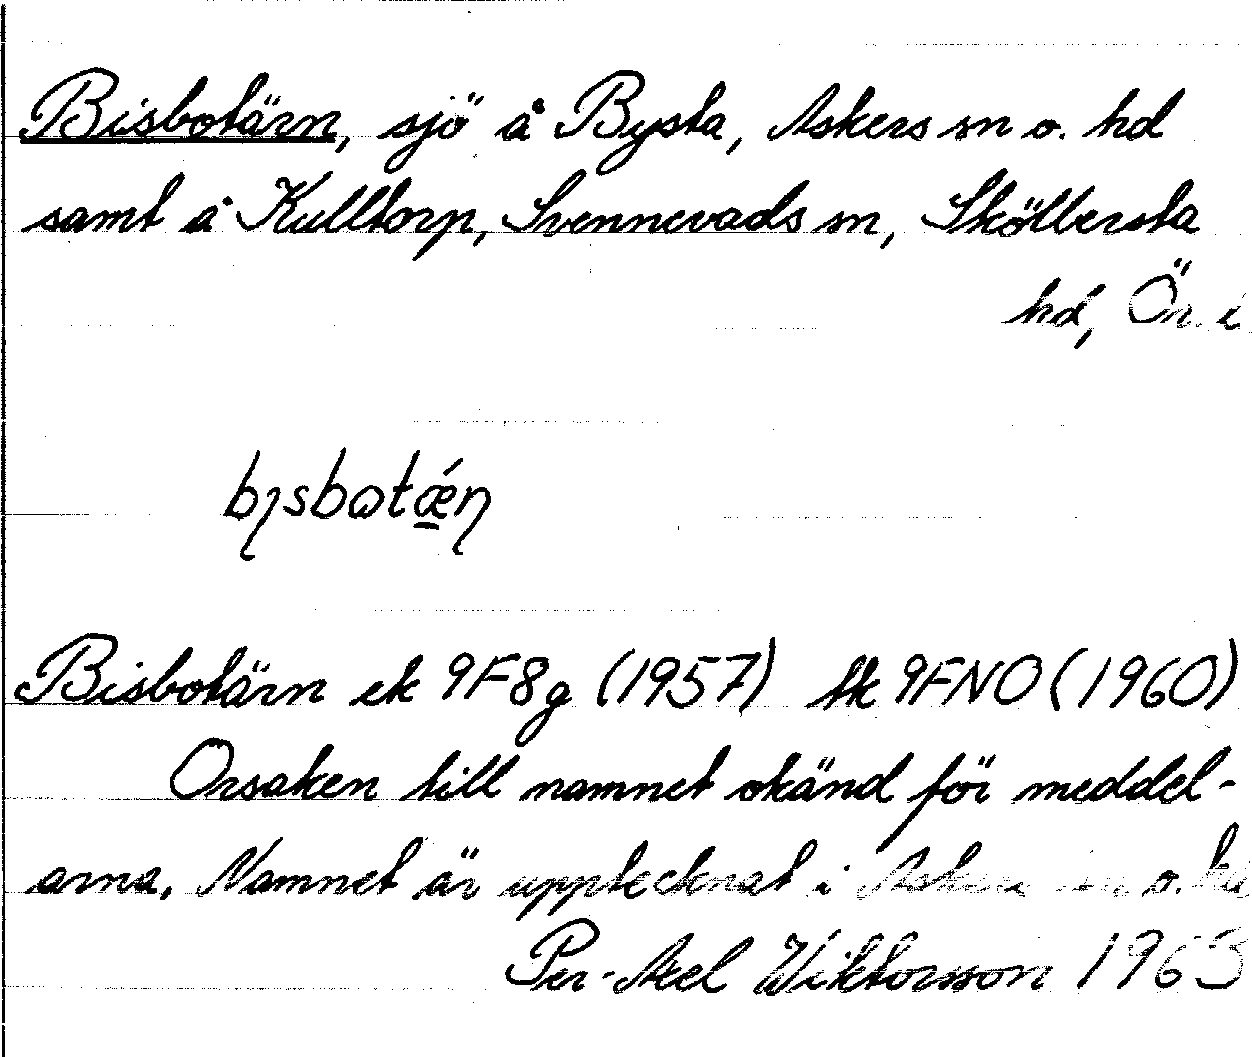 Bisbotärn, sjö å Bysta, Askers sn o. hd
samt å Kulltorp, Svennevads sn, Sköllersta
hd, Ör. l
bɿsbɷtǽ̠ɳ
Bisbotärn ek 9F8g (1957) tk 9FNO (1960)
Orsaken till namnet okänd för meddel-
arna. Namnet är upptecknat i Askers sn o. hd
Per-Axel Wiktorsson 1963